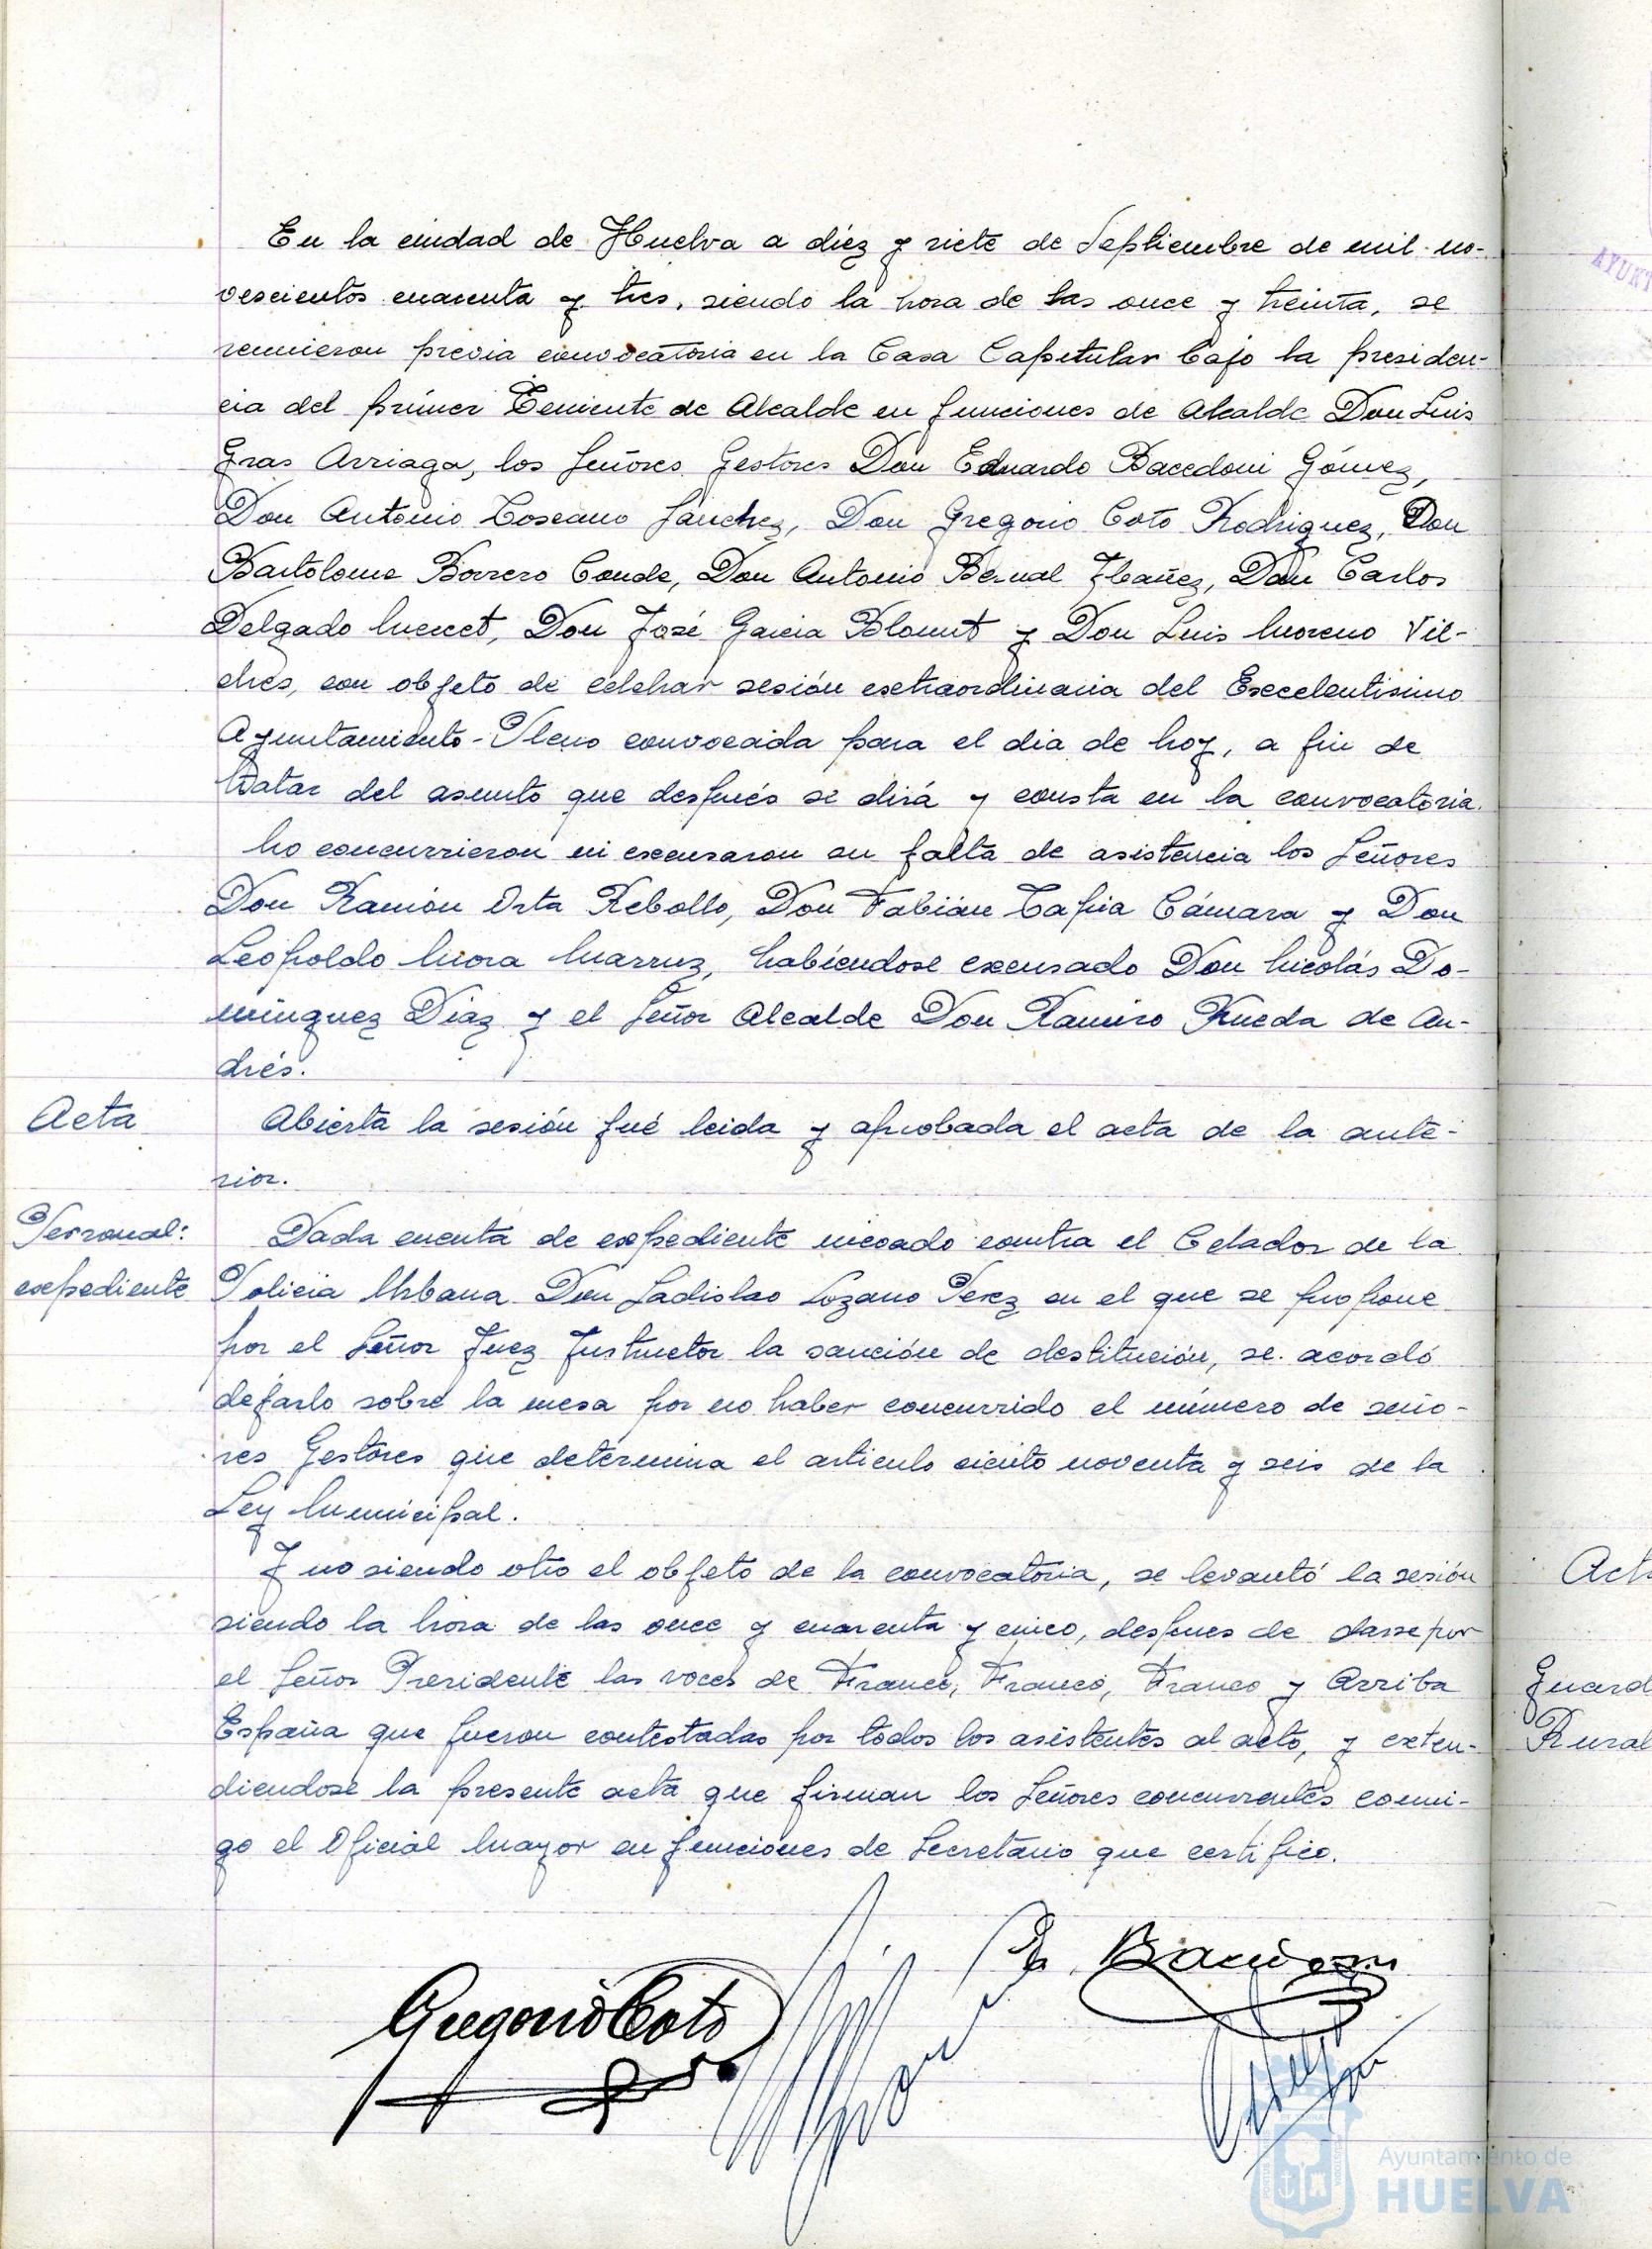 En la ciudad de Huelva a diez y siete de Septiembre de mil no-
vescientos cuarenta y tres, siendo la hora de las once y treinta, se
reunieron previa convocatoria en la Casa Capitular bajo la presiden-
cia del primer Teniente de Alcalde en funciones de Alcalde Don Luis
Gras Arriaga, los Señores Gestores Don Eduardo Bacedoni Gómez,
Don Antonio Toscano Sánchez, Don Gregorio Coto Rodriguez, Don
Bartolome Borrero Conde, Don Antonio Bernal Ibañez, Don Carlos
Delgado Mercet, Don José Garcia Blomut y Don Luis Moreno Vil-
ches, con objeto de celebrar sesión extraordinaria del Excelentisimo
Ayuntamiento-Pleno convocada para el dia de hoy, a fin de
tratar del asunto que después se dirá y consta en la convocatoria.
No concurrieron ni excusaron su falta de asistencia los Señores
Don Ramón Orta Rebollo, Don Fabián Tapia Cámara y Don
Leopoldo Mora Marruz, habiéndose excusado Don Nicolás Do-
minguez Diaz y el Señor Alcalde Don Ramiro Rueda de An-
drés.
Acta
Abierta la sesión fué leida y aprobada el acta de la ante-
rior.
Personal:
expediente
Dada cuenta de expediente incoado contra el Celador de la
Policia Urbana Don Ladislao Lozano Perez en el que se propone
por el Señor Juez Instructor la sanción de destitución, se acordó
dejarlo sobre la mesa por no haber concurrido el número de seño-
res Gestores que determina el articulo ciento noventa y seis de la
Ley Municipal.
Y no siendo otro el objeto de la convocatoria, se levantó la sesión
siendo la hora de las once y cuarenta y cinco, despues de darse por
el Señor Presidente las voces de Franco, Franco, Franco y Arriba
España que fueron contestadas por todos los asistentes al acto, y exten-
diendose la presente acta que firman los Señores concurrentes conmi-
go el Oficial Mayor en funciones de Secretario que certifico.
Gregorio Coto
E. Bacedoni
AYUNT
Act
Guard
Rural
Ayuntamiento de
HUELVA